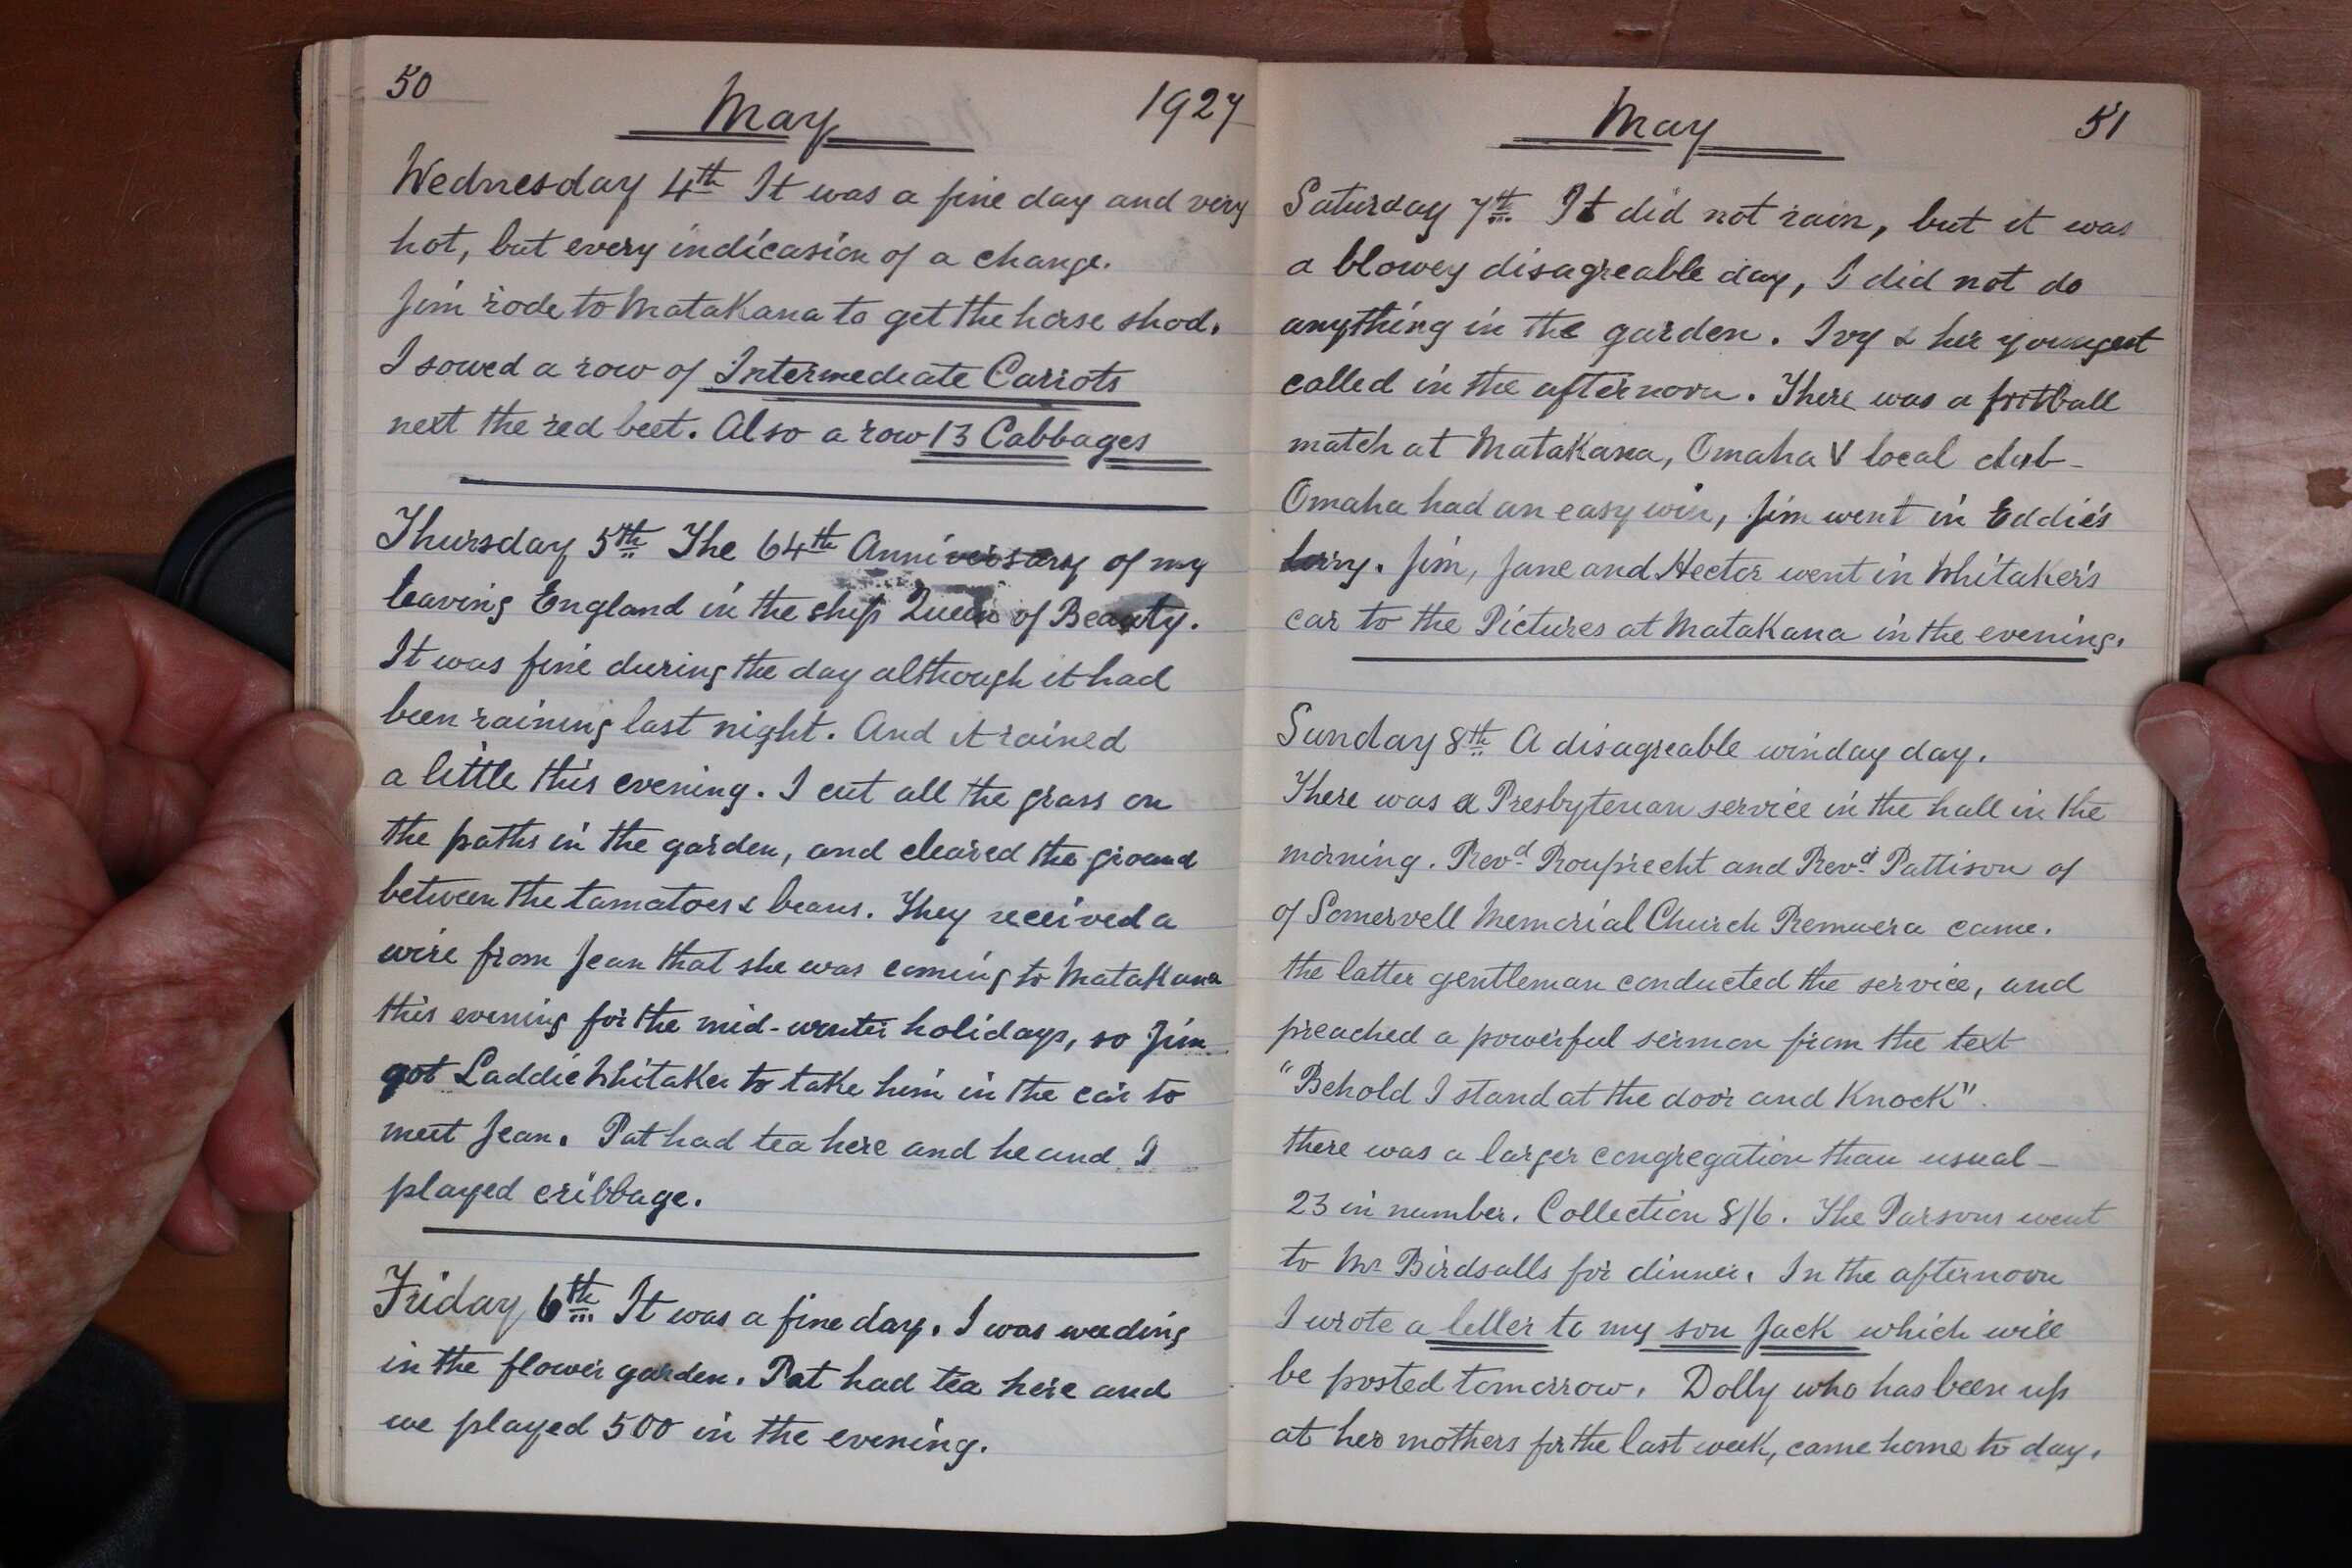 50
May 1927
Wednesday 4th It was a fine day and very
hot, but every indicasion of a change.
Jim rode to Matakana to get the horse shod.
I sowed a row of Intermediate Carrots
next the red beet. Also a row 13 Cabbages
Thursday 5th The 64th Anniversary of my
leaving England in the ship Queen of Beauty.
It was fine during the day although it had
been raining last night. And it rained
a little this evening. I cut all the grass on
the paths in the garden, and cleared the ground
between the tamatoes & beans. They received a
wire from Jean that she was coming to Matakana
this evening for the mid-winter holidays, so Jim
got Laddie Whitaker to take him in the car to
meet Jean. Pat had tea here and he and I
played cribbage.
Friday 6th It was a fine day. I was weeding
in the flower garden. Pat had tea here and
we played 500 in the evening.
May 51
Saturday 7th. It did not rain, but it was
a blowey disagreable day, I did not do
anything in the garden. Ivy & her youngest
called in the afternoon. There was a football
match at Matakana, Omaha V local club-
Omaha had an easy win, Jim went in Eddie's
lorry. Jim, Jane and Hector went in Whitaker's
car to the Pictures at Matakana in the evening.
Sunday 8th A disagreable winday day.
There was a Presbyterian service in the hall in the
morning. Revd Rouprecht and Revd Pattison of
of Somervell Memorial Church Remuera came.
the latter gentleman conducted the service, and
preached a powerful sermon from the text
"Behold I stand at the door and Knock".
there was a larger congregation than usual-
23 in number. Collection 8/6. The Parsons went
to Mr Birdsalls for dinner. In the afternoon
I wrote a letter to my son Jack which will
be posted tomorrow. Dolly who has been up
at her mothers for the last week, came home to day.